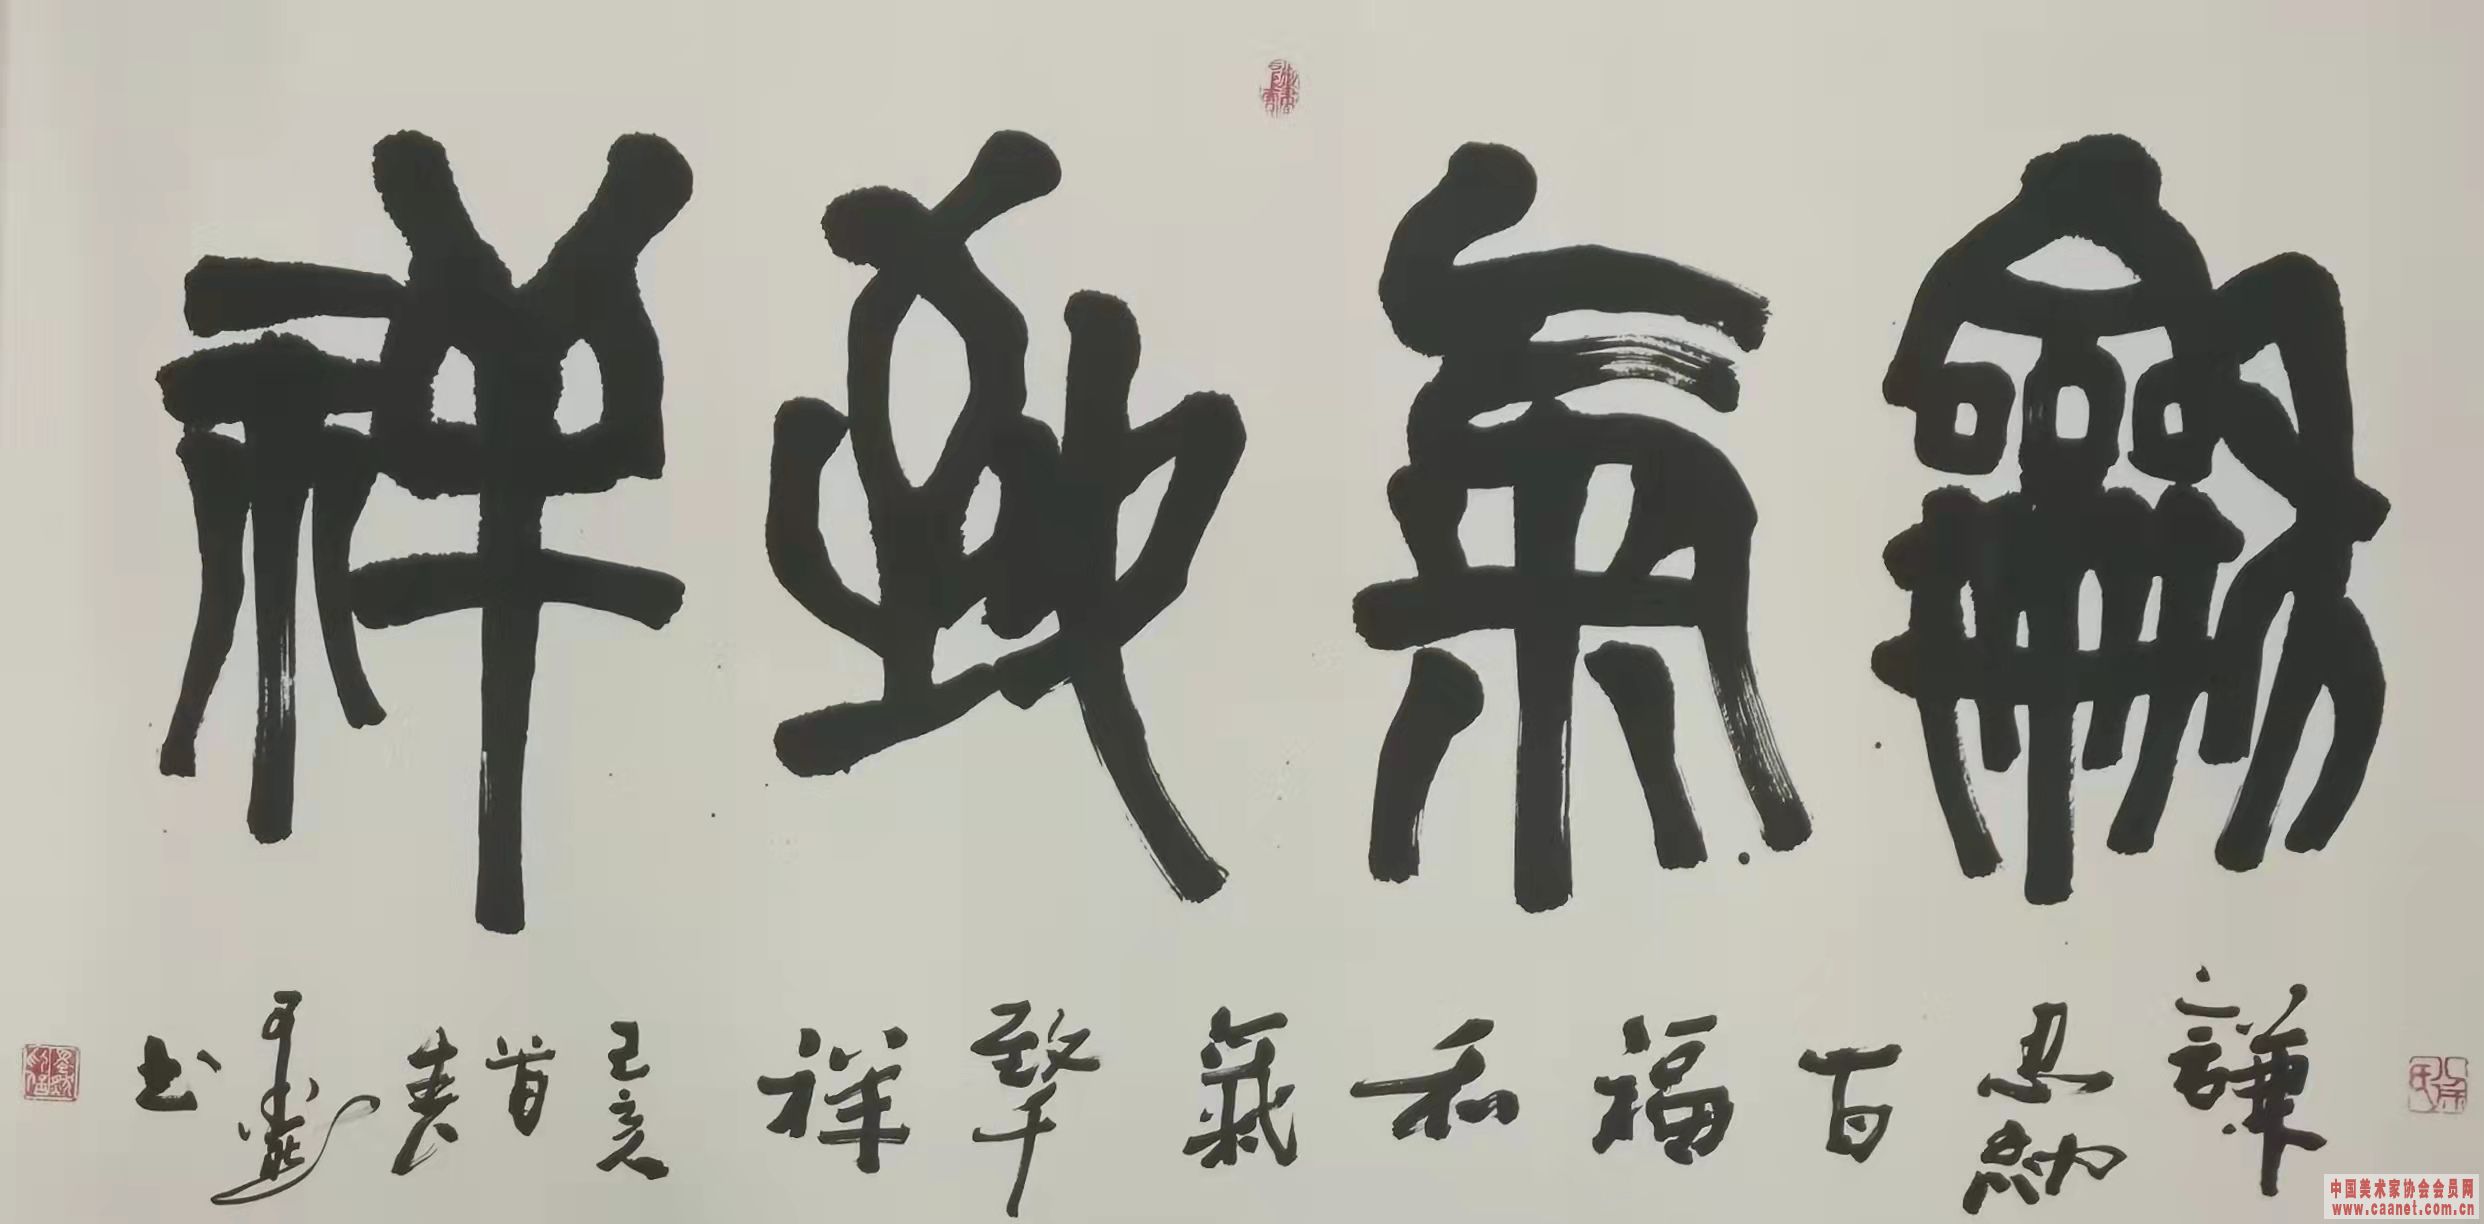 龢氣致祥
謙忍納百福和氣祥己亥首春书
中国美术家协会会员网
www.caanet.com.cn